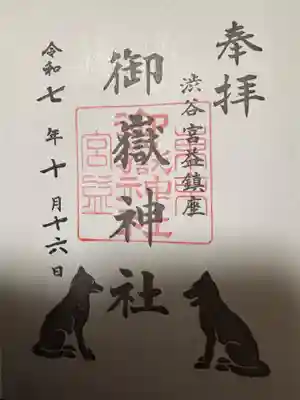 奉拝
渋谷宮益鎮座
御嶽神社
令和七年十月十六日